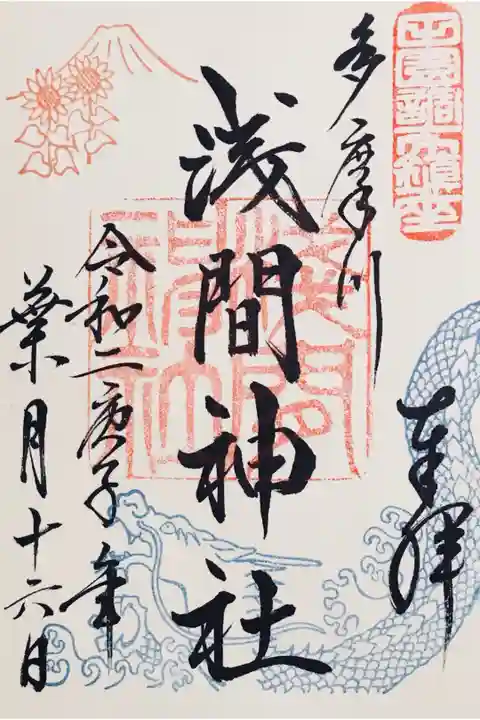 奉拝
多摩川
浅間神社
令和二庚子年
葉月十六日
浅間神社